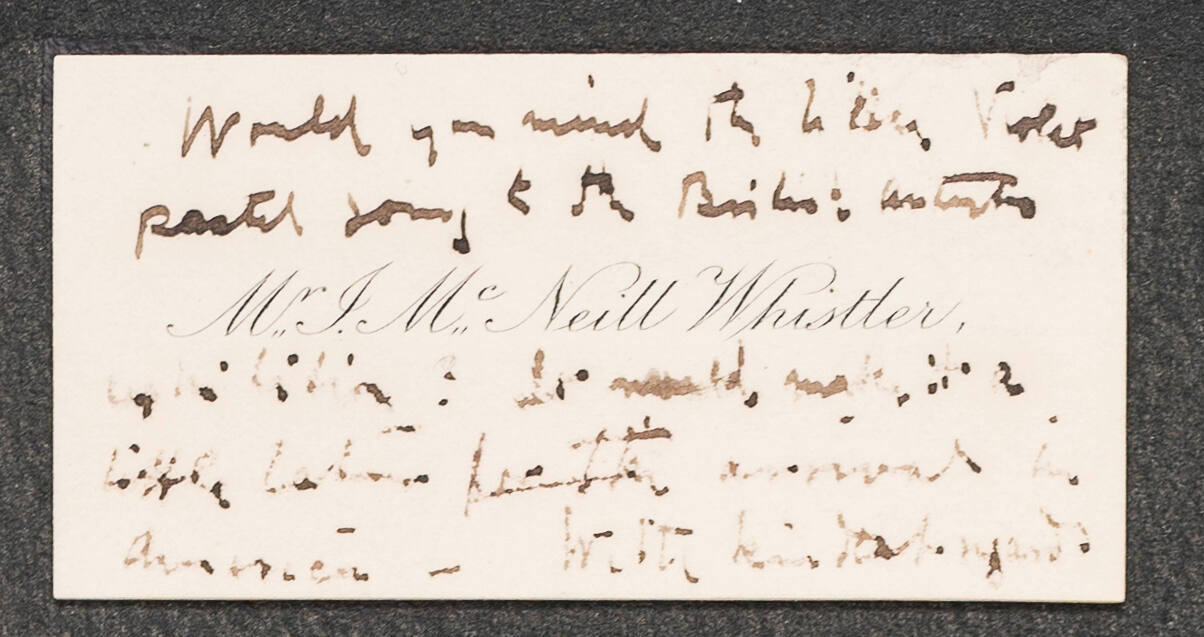 Would you mind the little, Violet
pastel going to the British artists
Mr. J. Mc. Neill Whistler,
exhibition? It would, make, it a
little before
America — With kindest regards